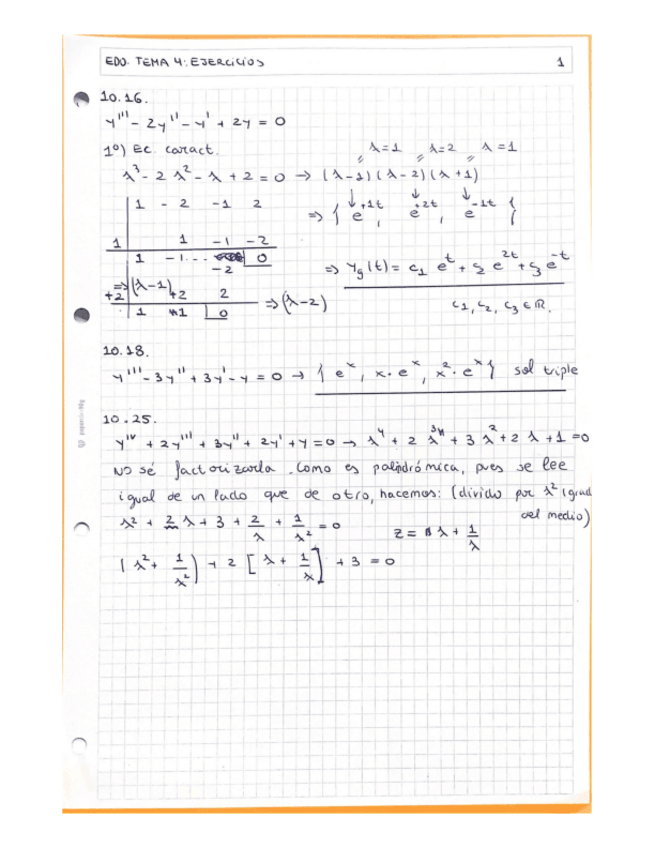 EDO. TEMA 4: EJERCICIOS 1
10.16.
y''' - 2y'' - y' + 2y = 0
1º) Ec. caract. λ=1 λ=2 λ=1
λ³ - 2λ² - λ + 2 = 0 → (λ-1)(λ-2)(λ+1)
1 -2 -1 2
⇒ { e^{+1t}, e^{+2t}, e^{-1t} }
1 1 -1 -2
1 -1 -2 0
⇒ y_g(t) = c₁ e^t + c₂ e^{2t} + c₃ e^{-t}
⇒(λ-1)
+2 +2 2 ⇒ (λ-2)
1 1 0
c₁, c₂, c₃ ∈ ℝ.
10.18.
y''' - 3y'' + 3y' - y = 0 → { e^x, x·e^x, x²·e^x } sol triple
10.25.
y^{IV} + 2y''' + 3y'' + 2y' + y = 0 → λ⁴ + 2λ³ + 3λ² + 2λ + 1 = 0
NO sé factorizarla. Como es palindrómica, pues se lee
igual de un lado que de otro, hacemos: (divido por λ² (grad
del medio)
λ² + 2λ + 3 + 2/λ + 1/λ² = 0
z = λ + 1/λ
(λ² + 1/λ²) + 2 [λ + 1/λ] + 3 = 0